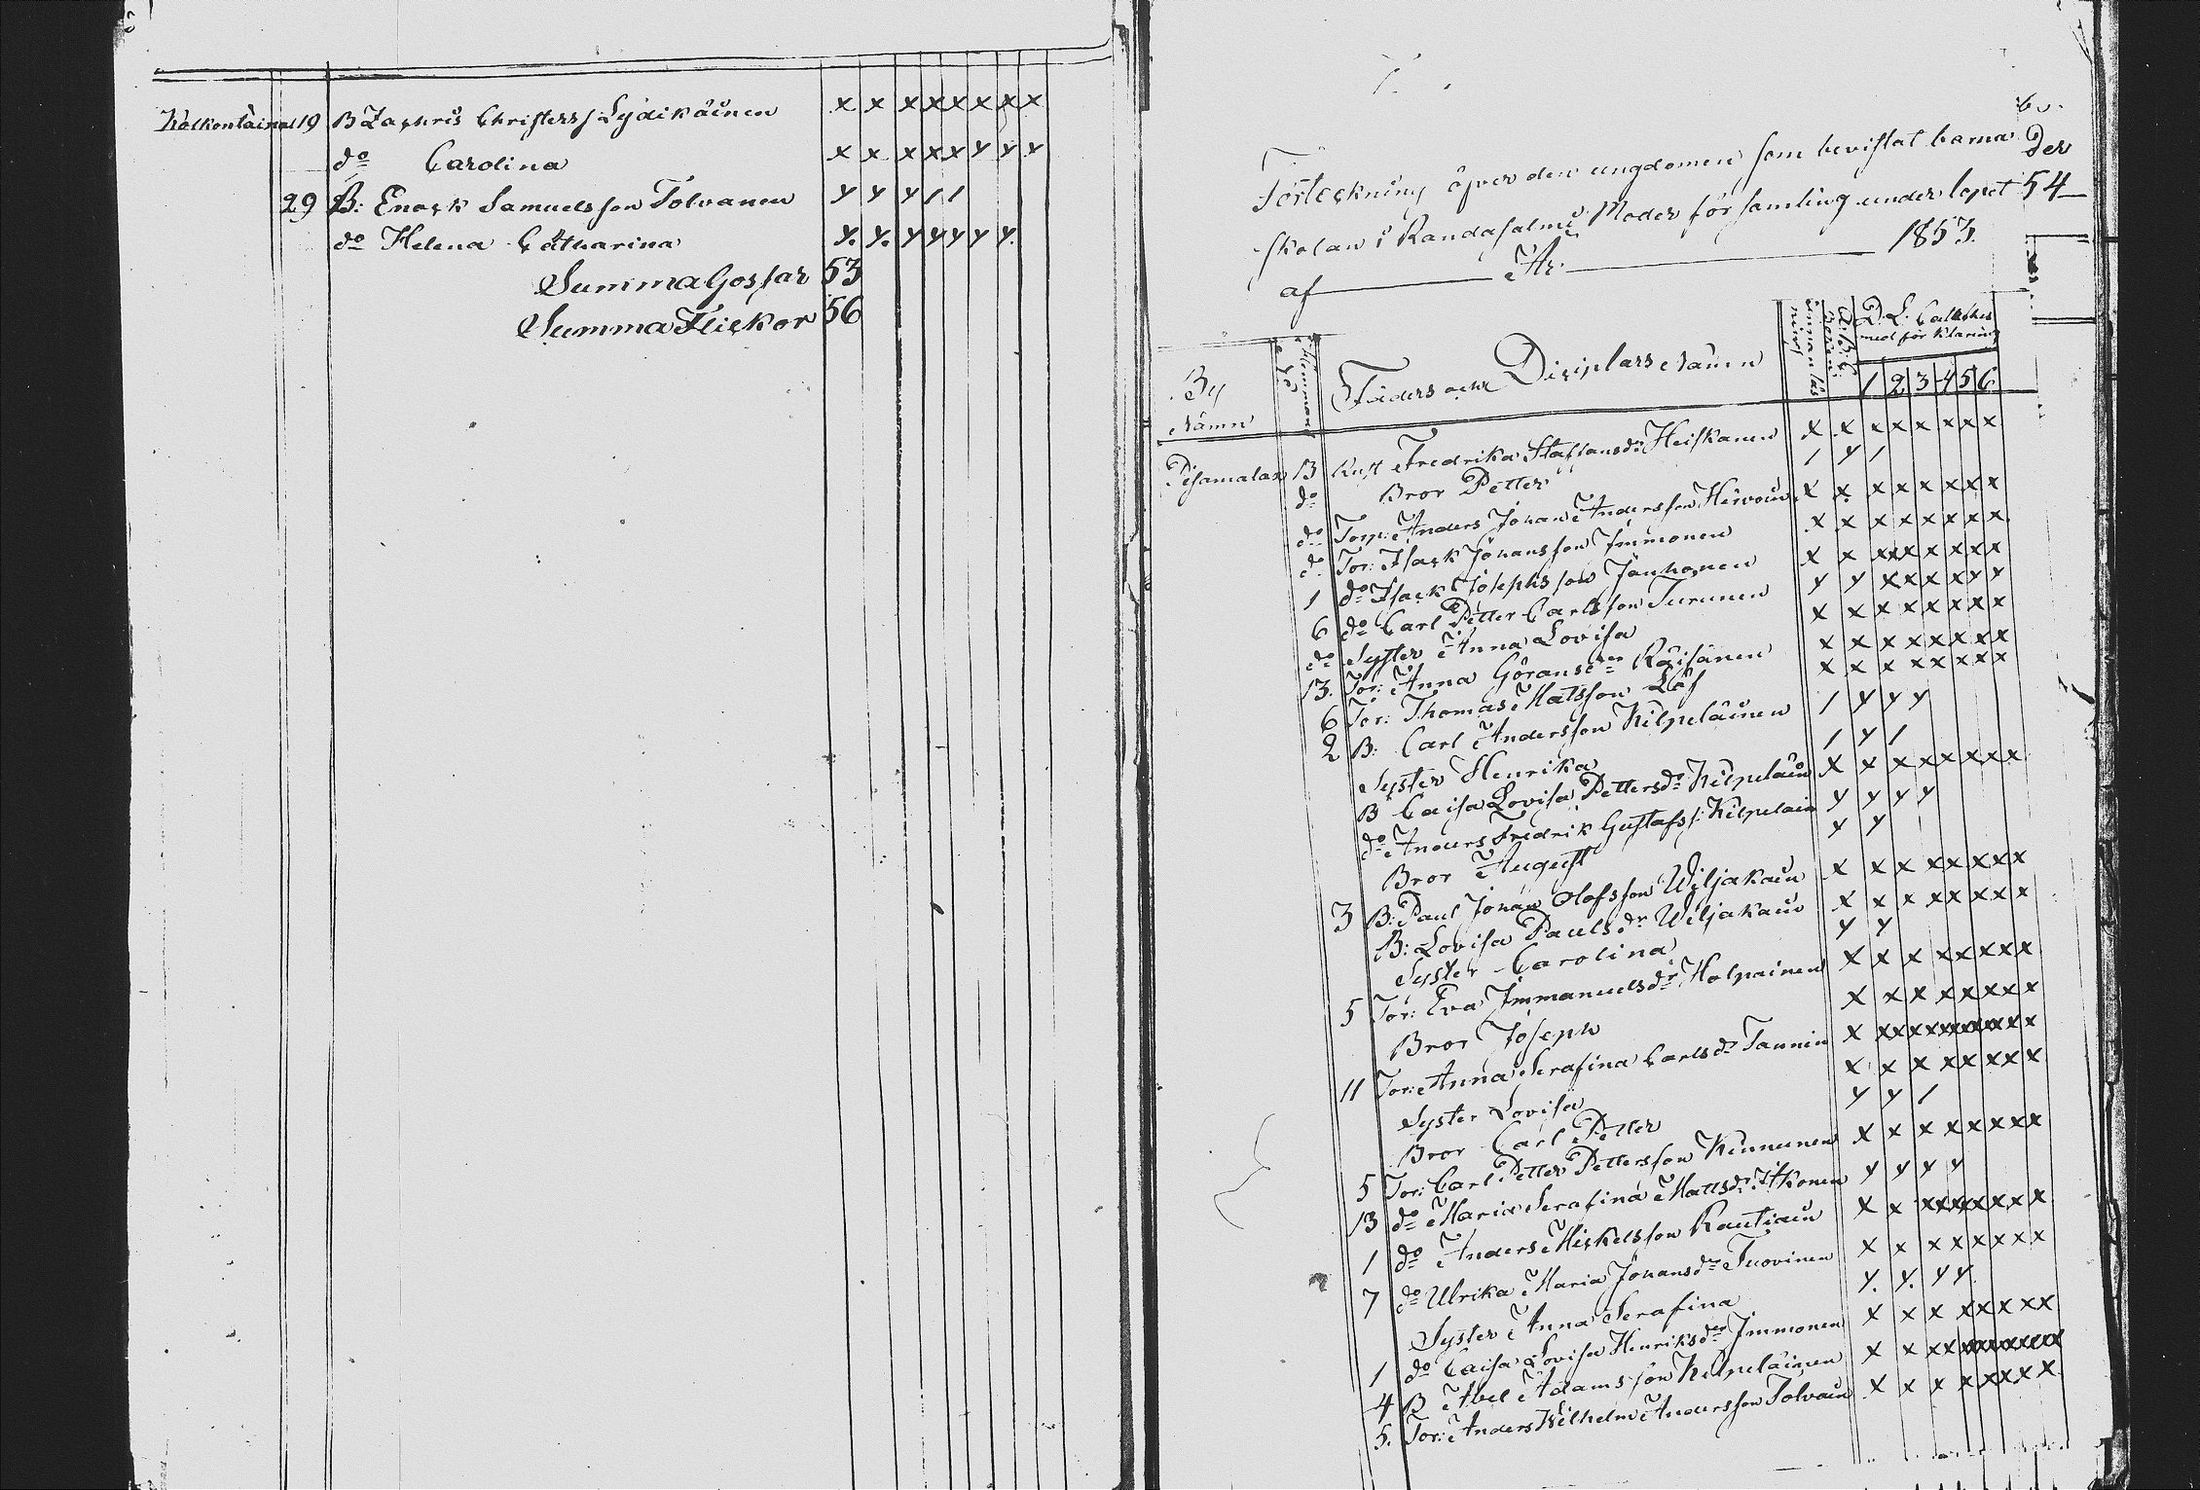 Kolkontaipal 19 B Zachris Christerss Lydikäinen x x x x x x x x
do Carolina x x x x x y y x
29 B: Enock Samuelsson Tolvanen y y y 1 1
do Helena Catharina y. y. y y y y y.
Summa Gossar 53
Summa Flickor 56
Förteckning öfver den ungdomen som bevistat barna
skolan i Randasalmi Moder församling under lopet
af År 1853.
Der
54
By Namn
Hemman No
Faders och Disiplars Namn
Innan läs
D. L. Catkches med förklaring
1 2 3 4 5 6
Pisamalax 13 Kust Fredrika Staffansdr Heiskanen x x x x x x x x
do Bror Petter 1 y 1
do Torp: Anders Johan Andersson Hirvoin x x x x x x x x
do Tor: Isack Johansson Immonen x x x x x x x x
1 do Isack Josephsson Janhonen x x x x x x x x
6 do Carl Petter Carlsson Turunen y y x x x x y y
do Syster Anna Lovisa x x x x x x x x
13. Tor: Anna Göransdr Räisänen x x x x x x x x
6 Tor: Thomas Matsson Löf x x x x x x x x
2 B: Carl Andersson Kilpeläinen 1 y y y
Syster Henrika 1 y 1
B Caisa Lovisa Pettersdr Kilpeläin x x x x x x x x
do Anders Fredrik Gustafss: Kilpeläin y y y y
Bror August y y
3 B: Paul Johan Olofsson Wiljakain x x x x x x x x
B: Lovisa Paulsdr Wiljakain x x x x x x x x
Syster Carolina y y
5 Tor: Eva Immanuelsdr Holpainen x x x x x x x x
Bror Joseph x x x x x x x x
11 Tor: Anna Serafina Carlsdr Tannin x x x x x x x x
Syster Lovisa x x x x x x x x
Bror Carl Petter y y 1
5 Tor: Carl Petter Pettersson Kinnunen x x x x x x x x
13 do Maria Serafina Mattsdr Itkonen y y y y
1 do Anders Mickelsson Rautiain x x x x x x x x
7 do Ulrika Maria Johansdr Tuovinen x x x x x x x x
Syster Anna Serafina y. y. y y
1 do Caisa Lovisa Henriksdr Immonen x x x x x x x x
4 B Abel Adamsson Kilpeläinen x x x x x x x x
5. Tor: Anders Wilhelm Andersson Tolvain x x x x x x x x